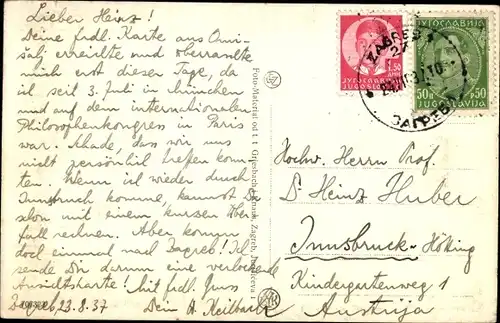 Lieber Heinz!
Deine frdl. Karte aus Omi-
šalj erreichte und überraschte
mich erst dieser Tage, da
ich seit 3. Juli in München
und auf dem internationalen
Philosophenkongress in Paris
war. Schade, dass wir uns
nicht persönlich treffen konn-
ten. Wenn ich wieder durch
Innsbruck komme, kannst Du
schon mit einem kurzen Über-
fall rechnen. Aber komm
doch einmal nach Zagreb! Ich
sende Dir darum eine verlockende
Ansichtskarte! Mit frdl. Gruss
Zagreb 23.8.37 Dein A. Keilbach
Foto-Materijal od t. t. Griesbach i Knaus, Zagreb, Jurišićeva
ЈУГОСЛАВИЈА
1.50
JUGOSLAVIJA
ЈУГОСЛАВИЈА
50
JUGOSLAVIJA
ZAGREB 2
ЗАГРЕБ
Hochw. Herrn Prof.
D. Heinz Huber
Innsbruck-Hötting
Kindergartenweg 1
Austrija